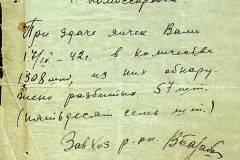 г. Комиссаровка
При сдаче яичек Вами
17/IX - 42г. в количестве
1308 шт, из них обнару
жено разбитых 57 шт.
(пятьдесят семь шт.)
Завхоз р-ры